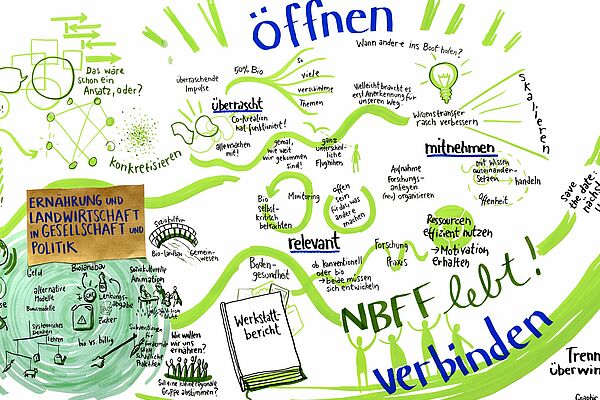 öffnen
Wann andere ins Boot holen?
Das wäre
schon ein
Ansatz, oder?
konkretisieren
überraschende
Impulse
50% Bio
So
viele
verschiedene
Themen
überrascht
Co-Kreation
hat funktioniert!
allen machen
mit!
genial,
wie weit
wir gekommen
sind!
ganz
unterschied-
liche
Flughöhen
Vielleicht braucht es
erst Anerkennung für
unseren Weg
Wissenstransfer
rasch verbessern
skalieren
mitnehmen
mit Wissen
auseinander-
setzen
handeln
Offenheit
Aufnahme
Forschungs-
anliegen
(neu) organisieren
save
the date:
nächst
Bio
selbst-
kritisch
betrachten
Monitoring
offen
sein
für das was
andere
machen
relevant
Ressourcen
effizient nutzen
→ Motivation
erhalten
Forschung
Praxis
Boden-
gesundheit
ob konventionell
oder bio
→ beide müssen
sich entwickeln
ERNÄHRUNG UND
LANDWIRTSCHAFT
IN GESELLSCHAFT UND
POLITIK
Bio-Landbau
Gemein-
wesen
Geld
alternative
Modelle
Bonusmodelle
Systemisches
Denken
lehren
Biolandbau
Lenkungs-
abgabe
Zucker
bio vs. billig
Soziokulturelle
Animation
Subventionen
für
Wie wollen
wir uns
ernähren?
Soll eine kleinregionale
Gruppe abstimmen?
Werkstatt-
bericht
NBFF lebt!
verbinden
Trenn
überwin
Graphic